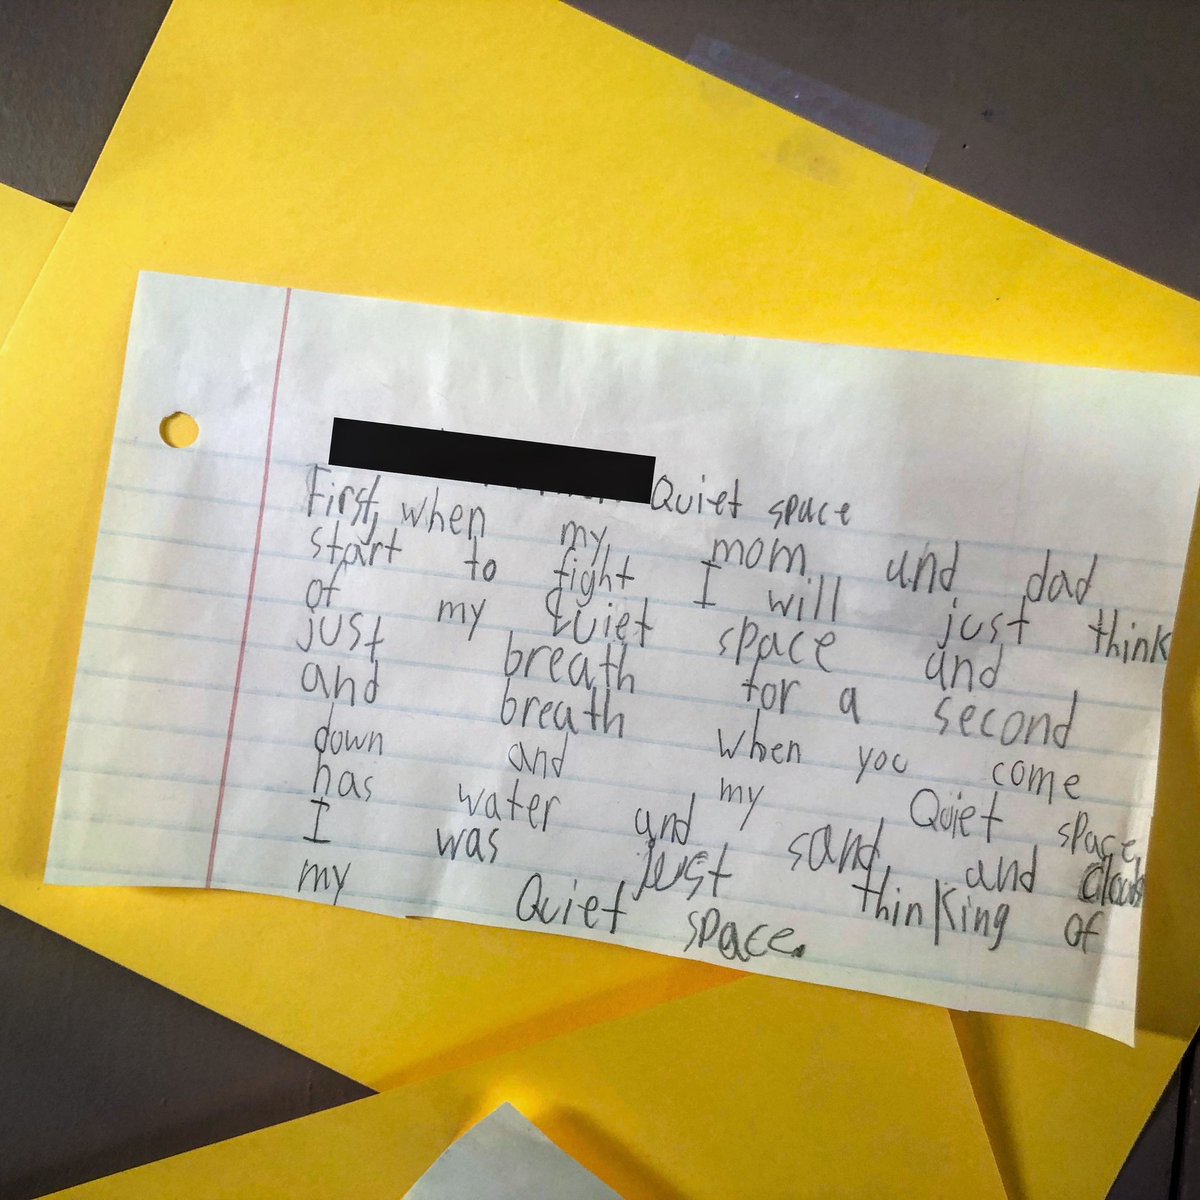 Quiet space
First, when my mom and dad
start to fight I will just think
of my Quiet space and
just breath for a second
and breath when you come
down and my Quiet space,
has water and sand and clouds
I was just thinking of
my Quiet space.